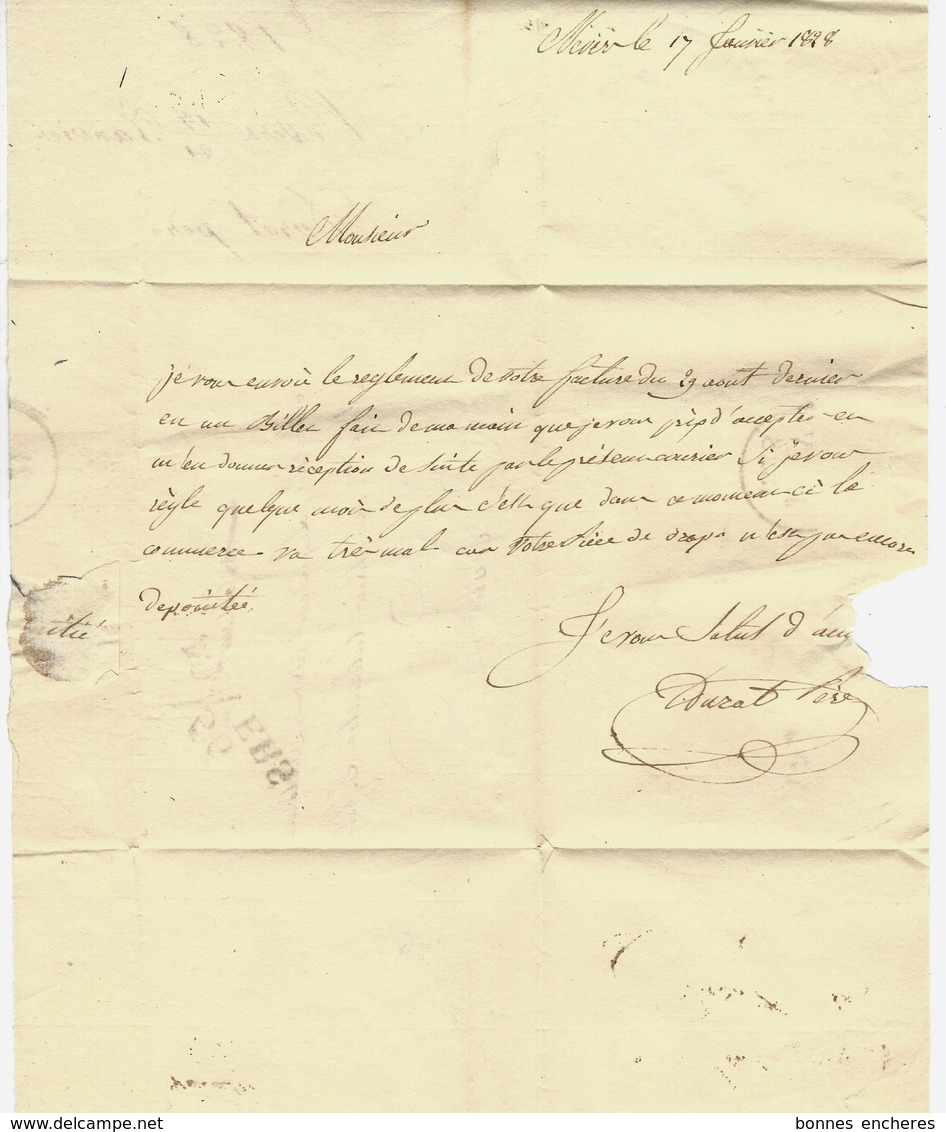 le 17 Janvier 1828
Monsieur
je vous envoie le reglement de votre facture du 29 aout dernier
en un Billet fait de ma main que je vous prie d'accepter en
m'en donner réception de suite par le présent courier Si je vous
règle quelque mois de plus c'est que dans ce moment ci le
commerce va très mal car votre pièce de drap n'est pas encore
depointée
itié
Je vous Salut d'am
Durat Père
bonnes encheres